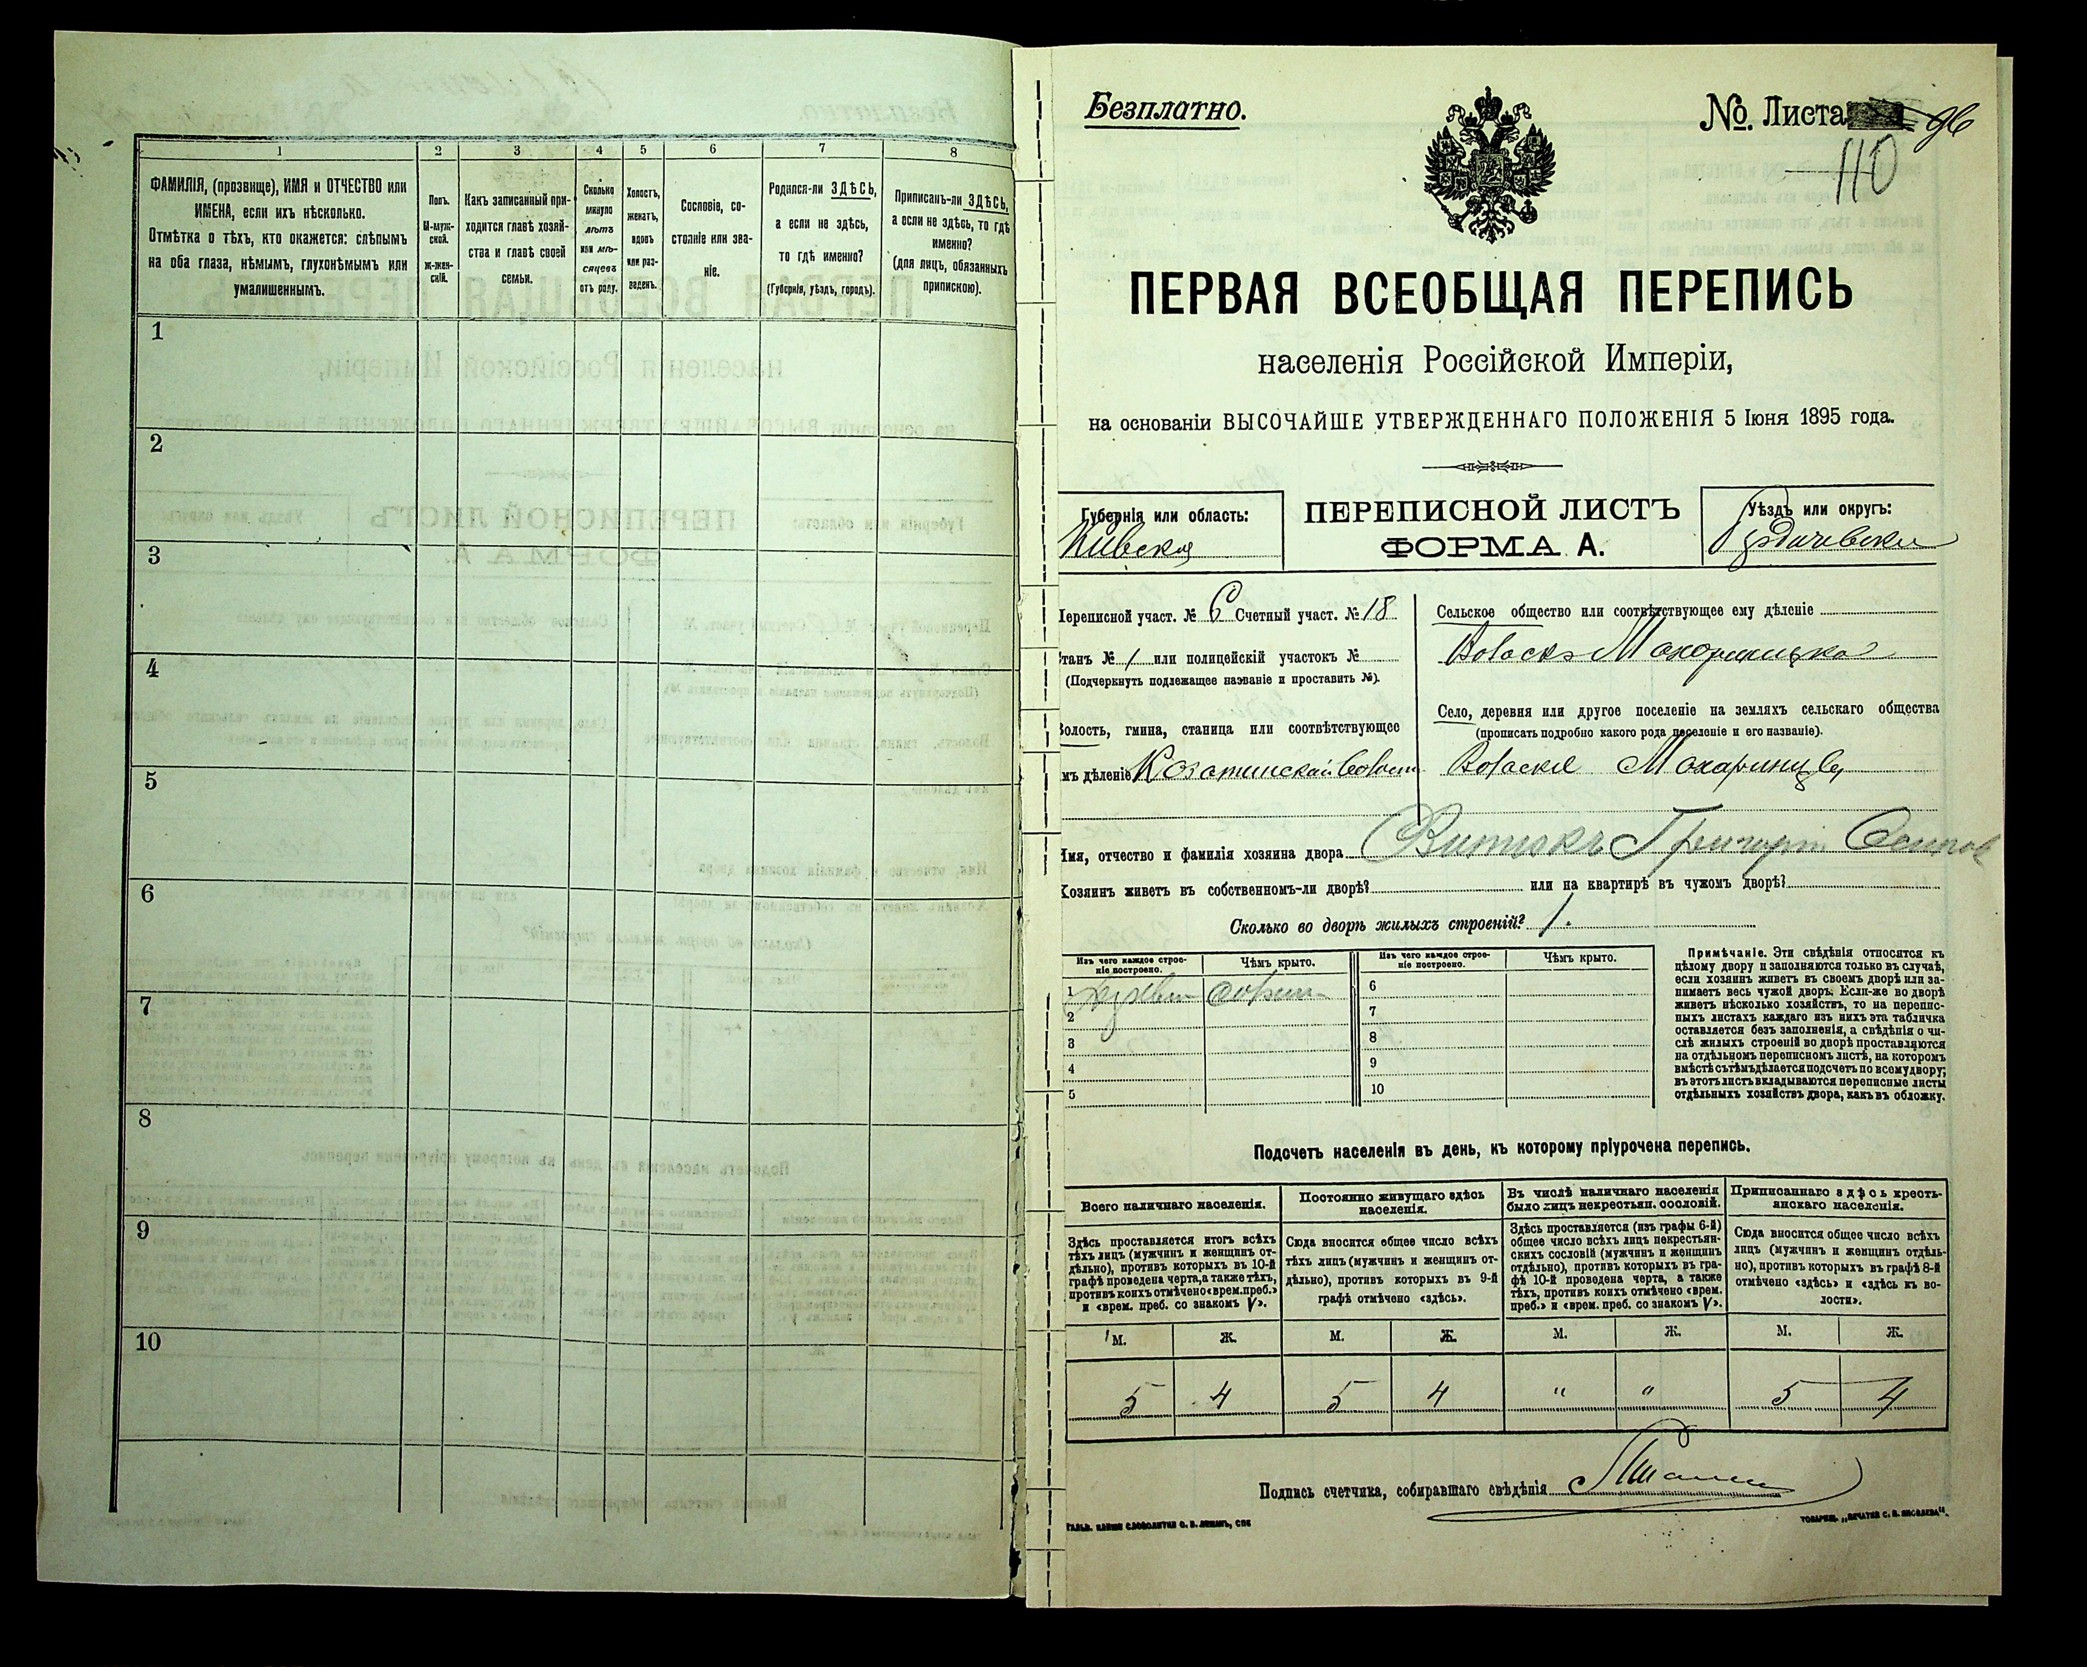 1 2 3 4 5 6 7 8
ФАМИЛІЯ, (прозвище), ИМЯ и ОТЧЕСТВО или
ИМЕНА, если ихъ нѣсколько.
Отмѣтка о тѣхъ, кто окажется: слѣпымъ
на оба глаза, нѣмымъ, глухонѣмымъ или
умалишеннымъ.
Полъ.
М-муж-
ской.
ж-жен-
скій.
Какъ записанный при-
ходится главѣ хозяй-
ства и главѣ своей
семьи.
Сколько
минуло
лѣтъ
или мѣ-
сяцевъ
отъ роду.
Холостъ,
женатъ,
вдовъ
или раз-
веденъ.
Сословіе, со-
стояніе или зва-
ніе.
Родился-ли ЗДѢСЬ,
а если не здѣсь,
то гдѣ именно?
(Губернія, уѣздъ, городъ).
Приписанъ-ли ЗДѢСЬ,
а если не здѣсь, то гдѣ
именно?
(для лицъ, обязанныхъ
припискою).
1
2
3
4
5
6
7
8
9
10
Безплатно.
№. Листа 96
110
ПЕРВАЯ ВСЕОБЩАЯ ПЕРЕПИСЬ
населенія Россійской Имперіи,
на основаніи ВЫСОЧАЙШЕ УТВЕРЖДЕННАГО ПОЛОЖЕНІЯ 5 Іюня 1895 года.
Губернія или область:
Кіевская
ПЕРЕПИСНОЙ ЛИСТЪ
ФОРМА А.
Уѣздъ или округъ:
Бердичевскій
Переписной участ. № 6 Счетный участ. № 18
Станъ № 1 или полицейскій участокъ №
(Подчеркнуть подлежащее названіе и проставить №).
Волость, гмина, станица или соотвѣтствующее
имъ дѣленіе Козатинская волость
Сельское общество или соотвѣтствующее ему дѣленіе
Село, деревня или другое поселеніе на земляхъ сельскаго общества
(прописать подробно какого рода поселеніе и его названіе).
Махаринцы
Имя, отчество и фамилія хозяина двора Витюкъ Григорій Осипов
Хозяинъ живетъ въ собственномъ-ли дворѣ? или на квартирѣ въ чужомъ дворѣ?
Сколько во дворѣ жилыхъ строеній? 1.
Изъ чего каждое строе-
ніе построено.
Чѣмъ крыто.
Изъ чего каждое строе-
ніе построено.
Чѣмъ крыто.
1 6
2 7
3 8
4 9
5 10
Примѣчаніе. Эти свѣдѣнія относятся къ
цѣлому двору и заполняются только въ случаѣ,
если хозяинъ живетъ въ своемъ дворѣ или за-
нимаетъ весь чужой дворъ. Если-же во дворѣ
живетъ нѣсколько хозяйствъ, то на перепис-
ныхъ листахъ каждаго изъ нихъ эта табличка
оставляется безъ заполненія, а свѣдѣнія о чи-
слѣ жилыхъ строеній во дворѣ проставляются
на отдѣльномъ переписномъ листѣ, на которомъ
вмѣстѣ съ тѣмъ дѣлается подсчетъ по всему двору;
въ этотъ листъ вкладываются переписные листы
отдѣльныхъ хозяйствъ двора, какъ въ обложку.
Подсчетъ населенія въ день, къ которому пріурочена перепись.
Всего наличнаго населенія.
Здѣсь проставляется итогъ всѣхъ
тѣхъ лицъ (мужчинъ и женщинъ от-
дѣльно), противъ которыхъ въ 10-й
графѣ проведена черта, а также тѣхъ,
противъ коихъ отмѣчено «врем. преб.»
и «врем. преб. со знакомъ V».
Постоянно живущаго здѣсь
населенія.
Сюда вносится общее число всѣхъ
тѣхъ лицъ (мужчинъ и женщинъ от-
дѣльно), противъ которыхъ въ 9-й
графѣ отмѣчено «здѣсь».
Въ числѣ наличнаго населенія
было лицъ некрестьян. сословій.
Здѣсь проставляется (изъ графы 6-й)
общее число всѣхъ лицъ некрестьян-
скихъ сословій (мужчинъ и женщинъ
отдѣльно), противъ которыхъ въ гра-
фѣ 10-й проведена черта, а также
тѣхъ, противъ коихъ отмѣчено «врем.
преб.» и «врем. преб. со знакомъ V».
Приписаннаго здѣсь кресть-
янскаго населенія.
Сюда вносится общее число всѣхъ
лицъ (мужчинъ и женщинъ отдѣль-
но), противъ которыхъ въ графѣ 8-й
отмѣчено «здѣсь» и «здѣсь къ во-
лости».
М. Ж. М. Ж. М. Ж. М. Ж.
5 4 5 4 " " 5 4
Подпись счетчика, собиравшаго свѣдѣнія